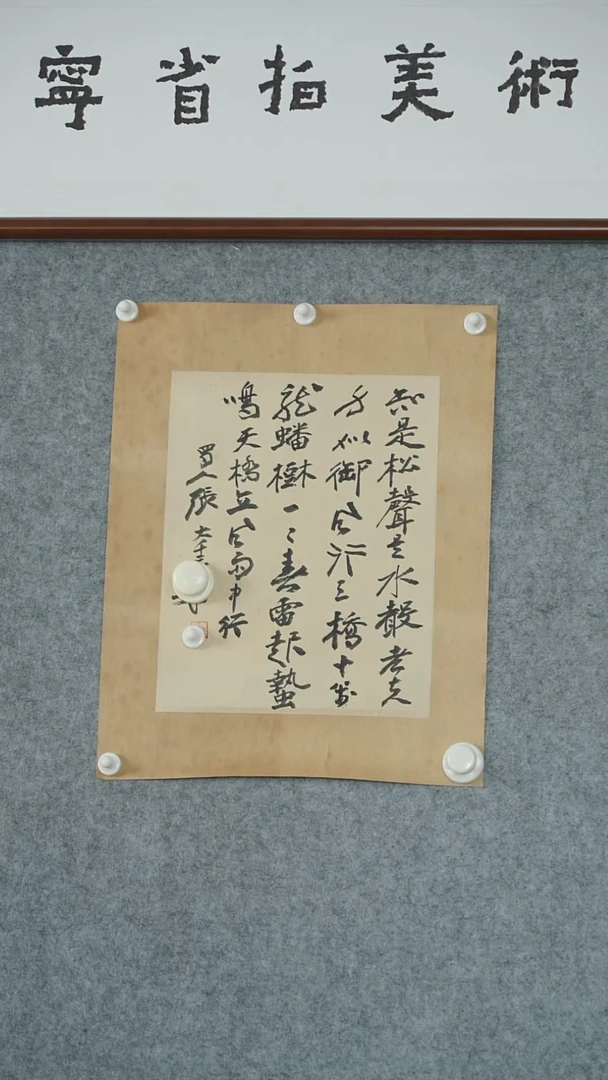 寧省拍美術
知是松聲是水聲老夫
方似御風行橋十萬
龍蟠樹一一春雷起蟄
鳴天橋立風雨中行
蜀人張大千